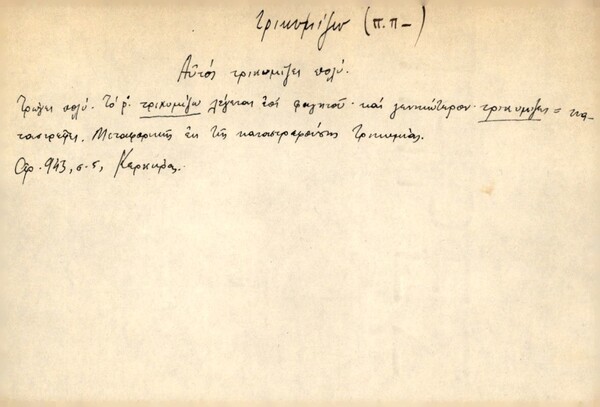 τρικυμίζω (π.π-)
Αὐτός τρικυμίζει πολύ.
Τρώγει πολύ. Τό ρ. τρικυμίζω λέγεται ἐπί φαγητοῦ καί γενικώτερον τρικυμίζει = κα-
ταστρέφει. Μεταφορικῶς ἐκ τῆς καταστρεφούσης τρικυμίας.
Χφ. 943, σ. 5, Κερκύρας.